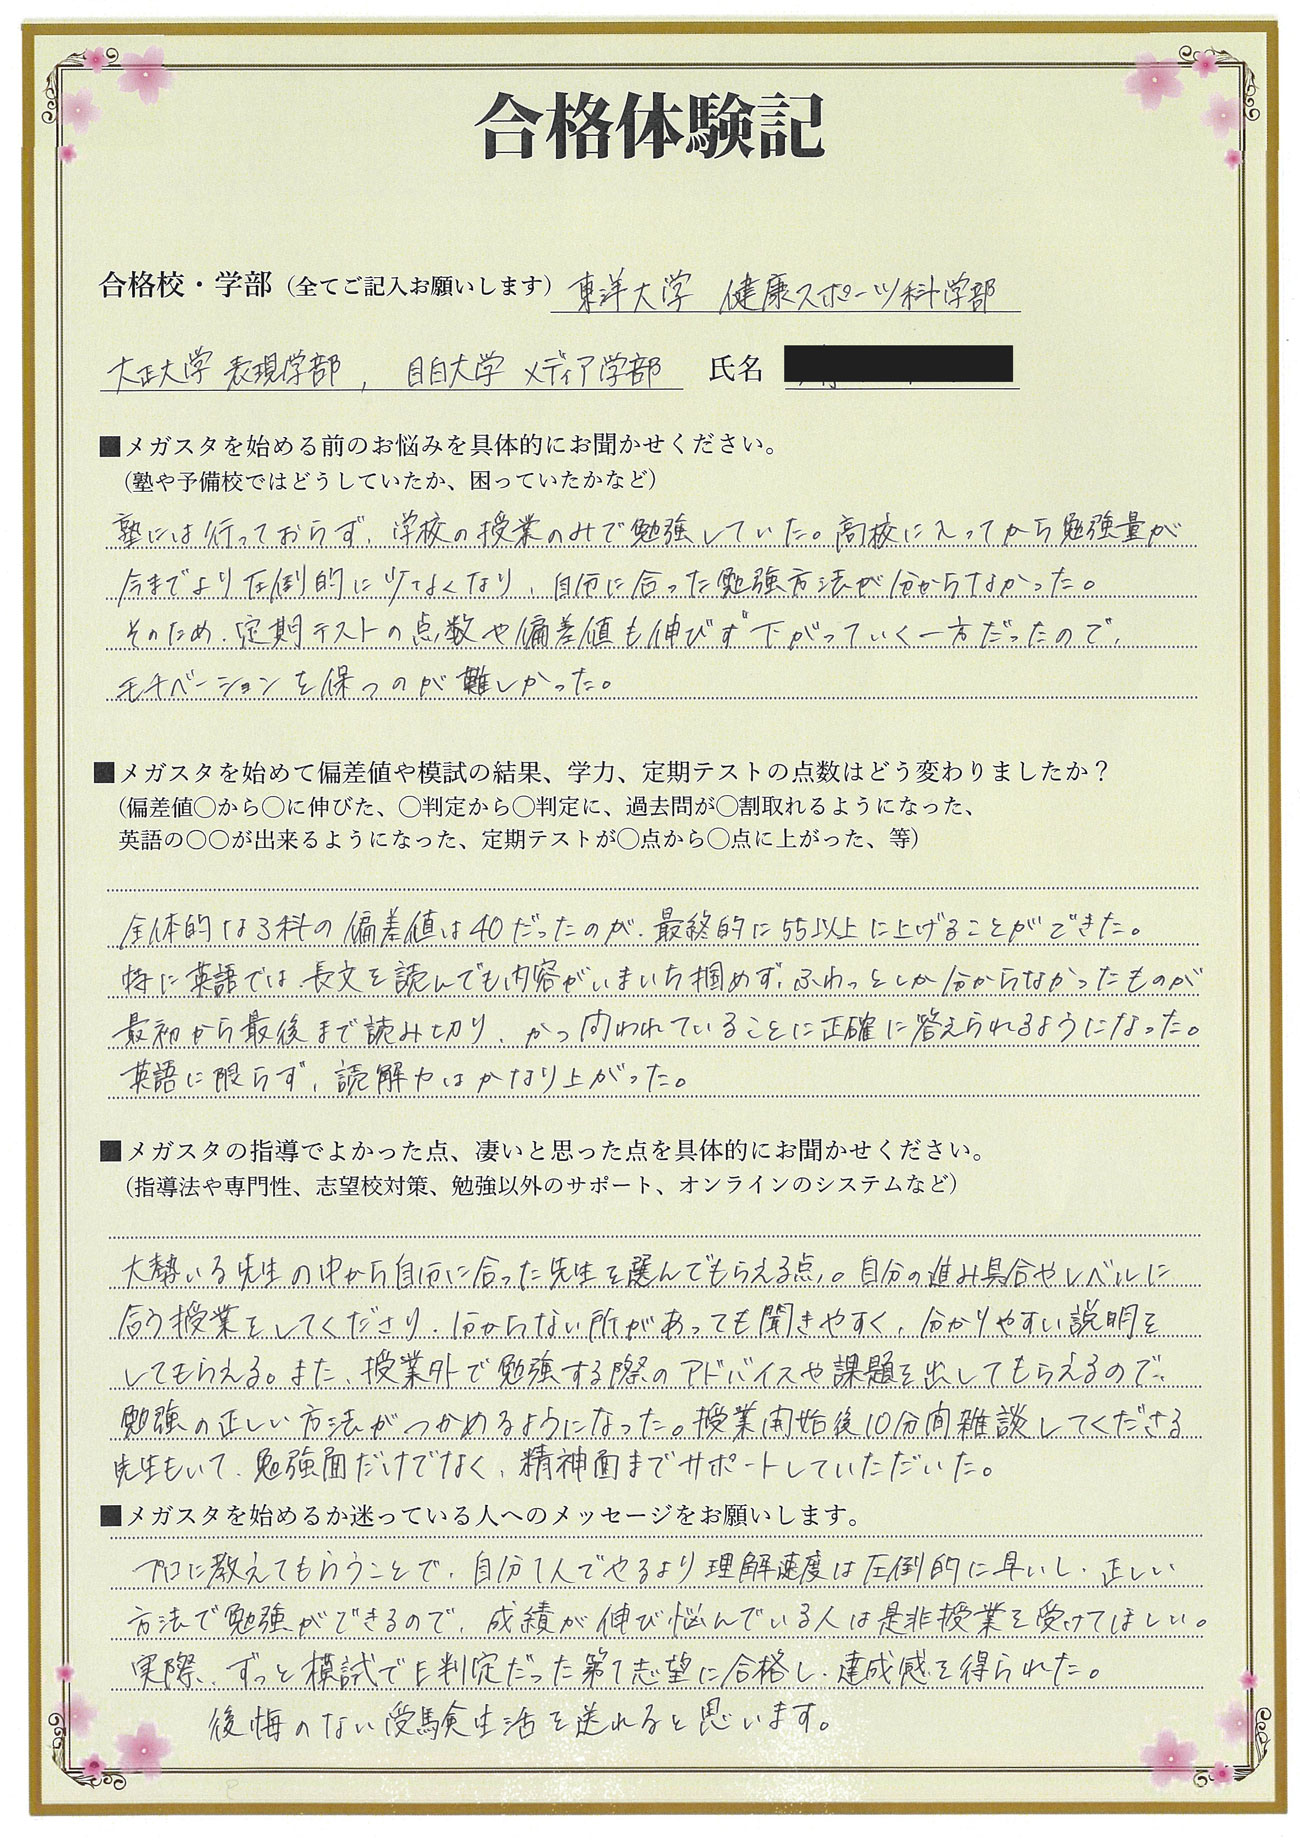 合格体験記
合格校・学部（全てご記入お願いします）東洋大学 健康スポーツ科学部
大正大学 表現学部, 目白大学 メディア学部 氏名
■メガスタを始める前のお悩みを具体的にお聞かせください。
（塾や予備校ではどうしていたか、困っていたかなど）
塾には行っておらず、学校の授業のみで勉強していた。高校に入ってから勉強量が
今までより圧倒的に少なくなり、自分に合った勉強方法が分からなかった。
そのため、定期テストの点数や偏差値も伸びず下がっていく一方だったので、
モチベーションを保つのが難しかった。
■メガスタを始めて偏差値や模試の結果、学力、定期テストの点数はどう変わりましたか？
（偏差値〇から〇に伸びた、〇判定から〇判定に、過去問が〇割取れるようになった、
英語の〇〇が出来るようになった、定期テストが〇点から〇点に上がった、等）
全体的な3科の偏差値は40だったのが、最終的に55以上に上げることができた。
特に英語では、長文を読んでも内容がいまいち掴めず、ふわっとしか分からなかったものが
最初から最後まで読み切り、かつ問われていることに正確に答えられるようになった。
英語に限らず、読解力はかなり上がった。
■メガスタの指導でよかった点、凄いと思った点を具体的にお聞かせください。
（指導法や専門性、志望校対策、勉強以外のサポート、オンラインのシステムなど）
大勢いる先生の中から自分に合った先生を選んでもらえる点。自分の進み具合やレベルに
合う授業をしてくださり、分からない所があっても聞きやすく、分かりやすい説明を
してもらえる。また、授業外で勉強する際のアドバイスや課題を出してもらえるので、
勉強の正しい方法がつかめるようになった。授業開始後10分間雑談してくださる
先生もいて、勉強面だけでなく、精神面までサポートしていただいた。
■メガスタを始めるか迷っている人へのメッセージをお願いします。
プロに教えてもらうことで、自分1人でやるより理解速度は圧倒的に早いし、正しい
方法で勉強ができるので、成績が伸び悩んでいる人は是非授業を受けてほしい。
実際、ずっと模試でE判定だった第1志望に合格し、達成感を得られた。
後悔のない受験生活を送れると思います。